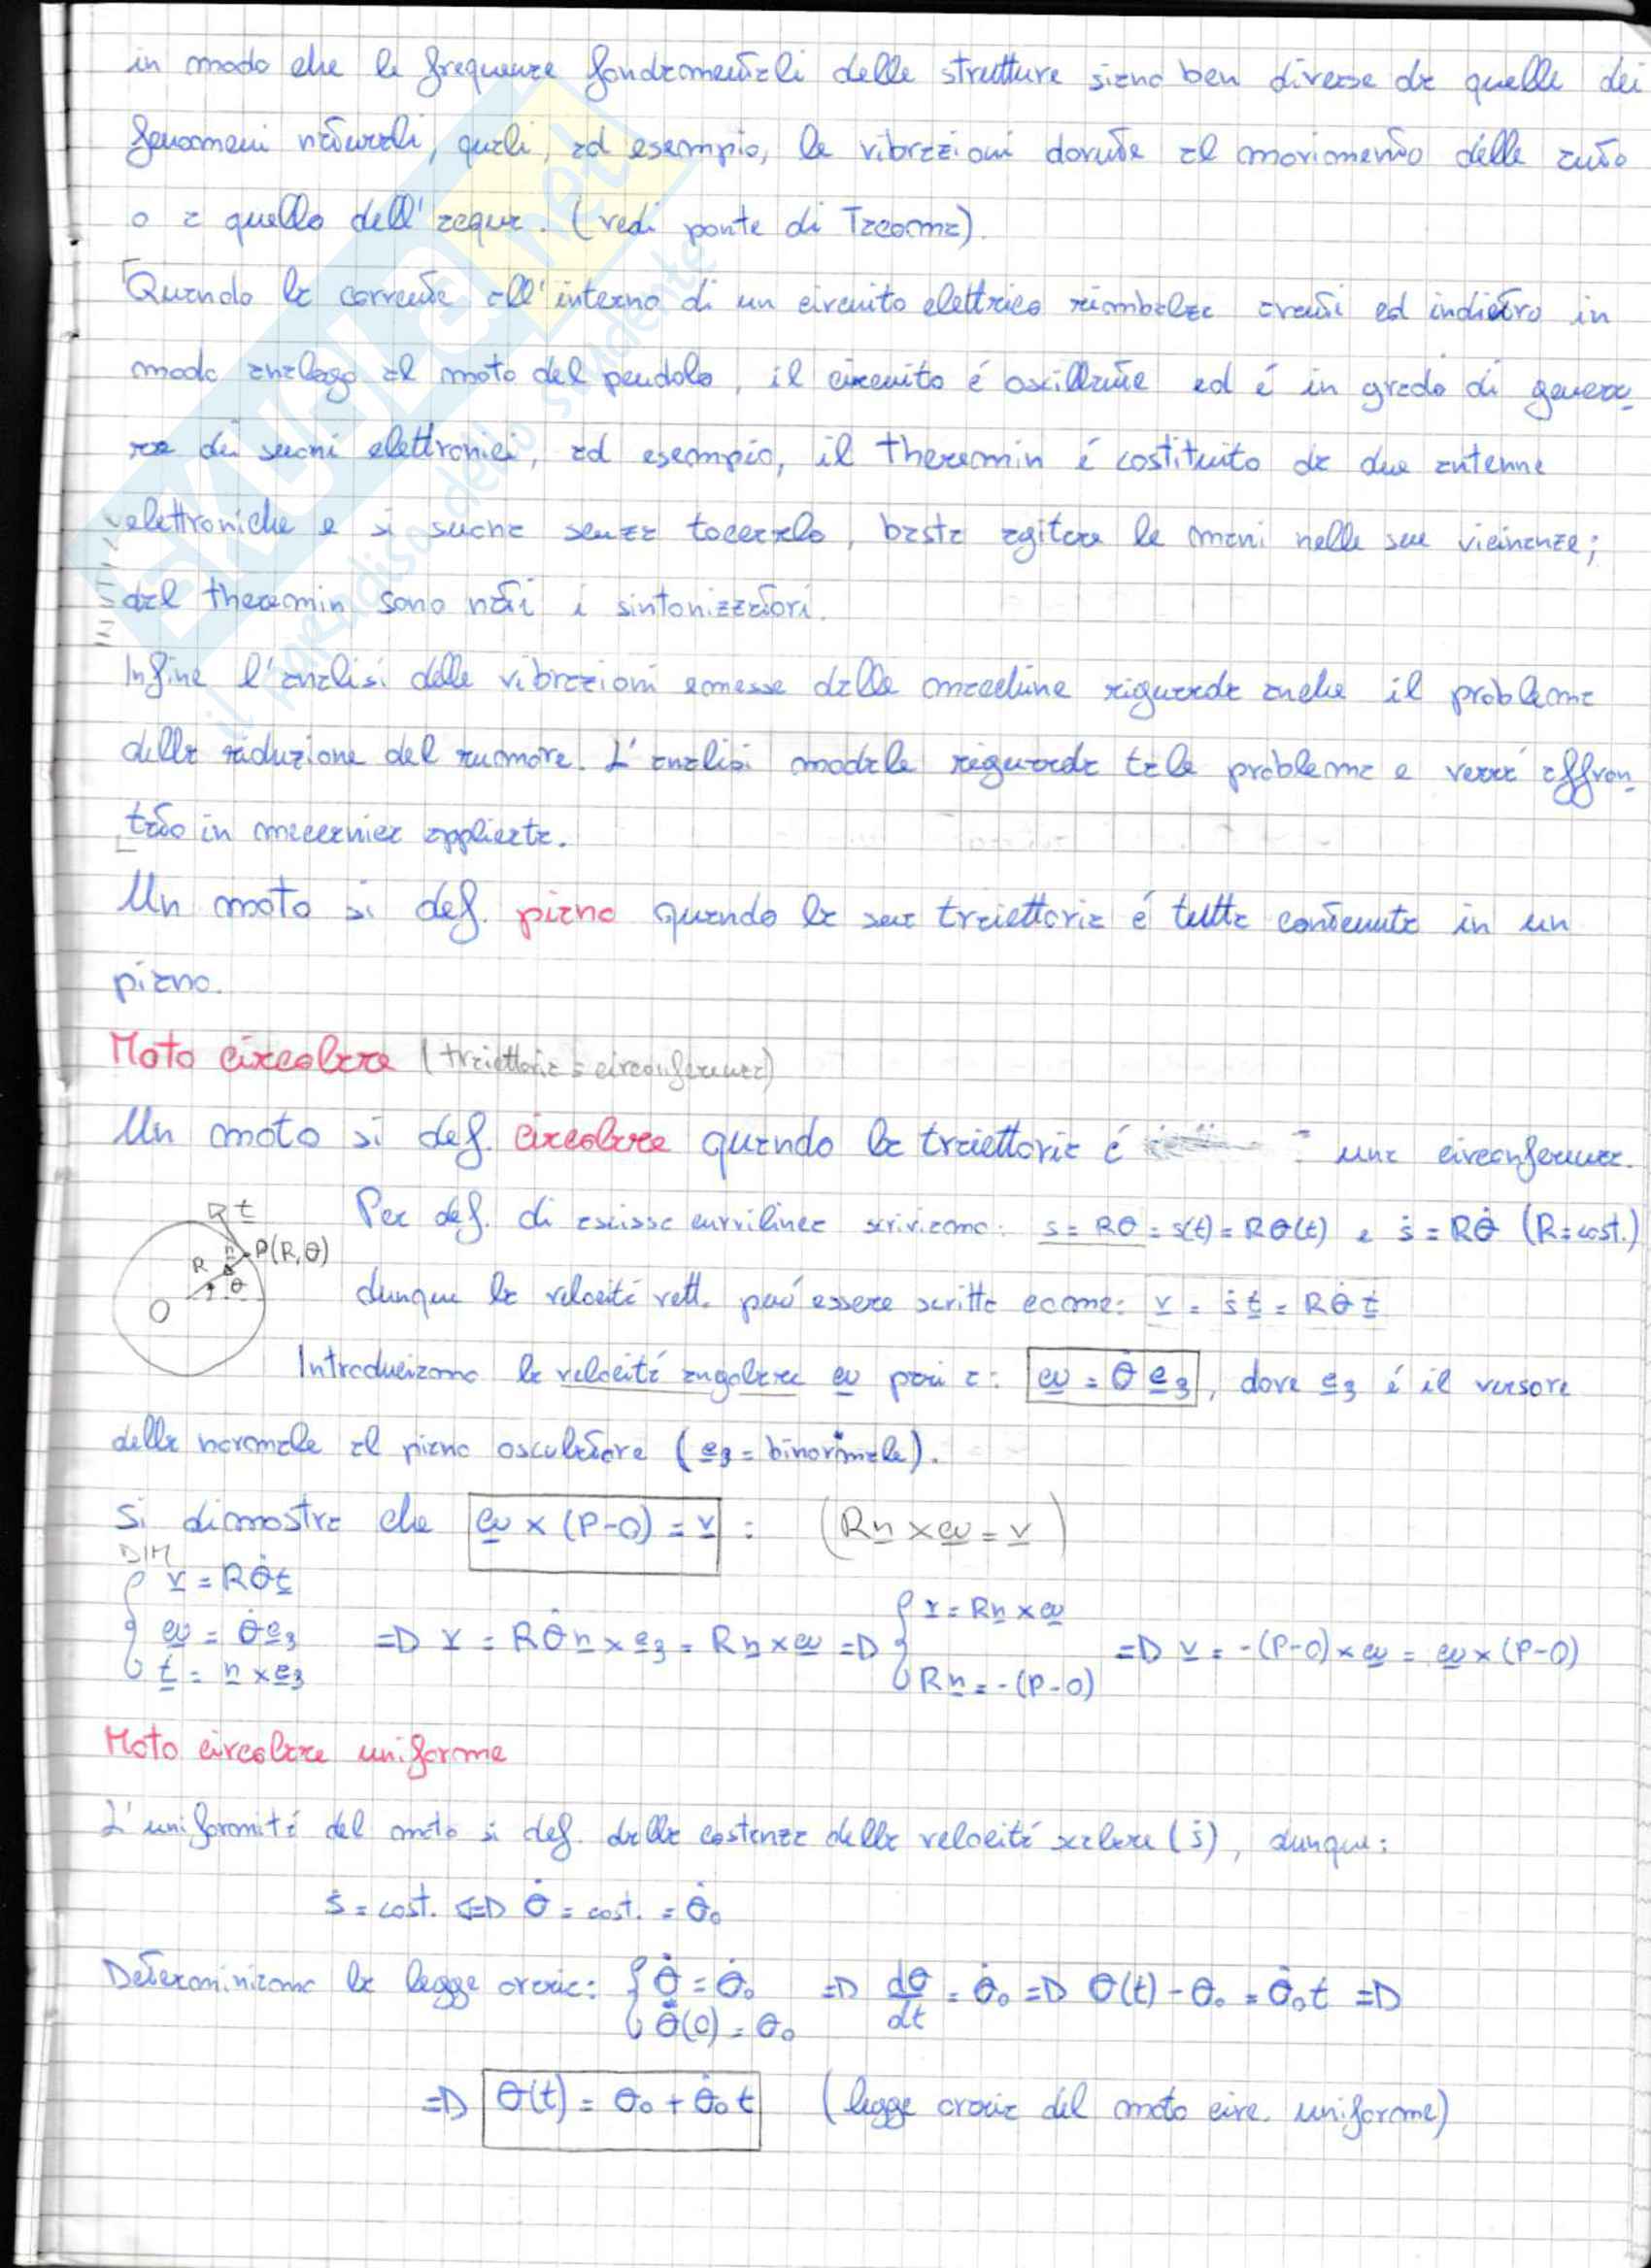 in modo che le frequenze fondamentali delle strutture siano ben diverse da quelle dei
fenomeni naturali, quali, ad esempio, le vibrazioni dovute al movimento delle auto
o a quello dell'acqua. (vedi ponte di Tacoma).
Quando la corrente all'interno di un circuito elettrico rimbalza avanti ed indietro in
modo analogo al moto del pendolo, il circuito é oscillante ed é in grado di genera-
re dei suoni elettronici, ad esempio, il theremin é costituito da due antenne
elettroniche e si suona senza toccarlo, basta agitare le mani nelle sue vicinanze;
dal theremin sono nati i sintonizzatori.
Infine l'analisi delle vibrazioni emesse dalle macchine riguarda anche il problema
della riduzione del rumore. L'analisi modale riguarda tale problema e verrá affron-
tato in meccanica applicata.
Un moto si def. piano quando la sua traiettoria é tutta contenuta in un
piano.
Moto circolare (traiettoria = circonferenza)
Un moto si def. circolare quando la traiettoria é = una circonferenza.
t
Per def. di ascissa curvilinea scriviamo: s = Rθ = s(t) = Rθ(t) e ṡ = Rθ̇ (R = cost.)
n P(R,θ)
R θ
O
dunque la velocitá vett. puó essere scritta come: v = ṡ t = Rθ̇ t
Introduciamo la velocitá angolare ω pari a: ω = θ̇ e₃, dove e₃ é il versore
della normale al piano osculatore (e₃ = binormale).
Si dimostra che ω × (P-O) = v : (Rn × ω = v)
DIM
{ v = Rθ̇t
ω = θ̇e₃ => v = Rθ̇ n × e₃ = Rn × ω => { v = Rn × ω => v = -(P-O) × ω = ω × (P-O)
t = n × e₃ Rn = -(P-O)
Moto circolare uniforme
L'uniformitá del moto si def. dalla costanza della velocitá scalare (ṡ), dunque:
ṡ = cost. <=> θ̇ = cost. = θ̇₀
Determiniamo la legge oraria: { θ̇ = θ̇₀ => dθ/dt = θ̇₀ => θ(t) - θ₀ = θ̇₀t =>
θ(0) = θ₀
=> θ(t) = θ₀ + θ̇₀ t (legge oraria del moto circ. uniforme)